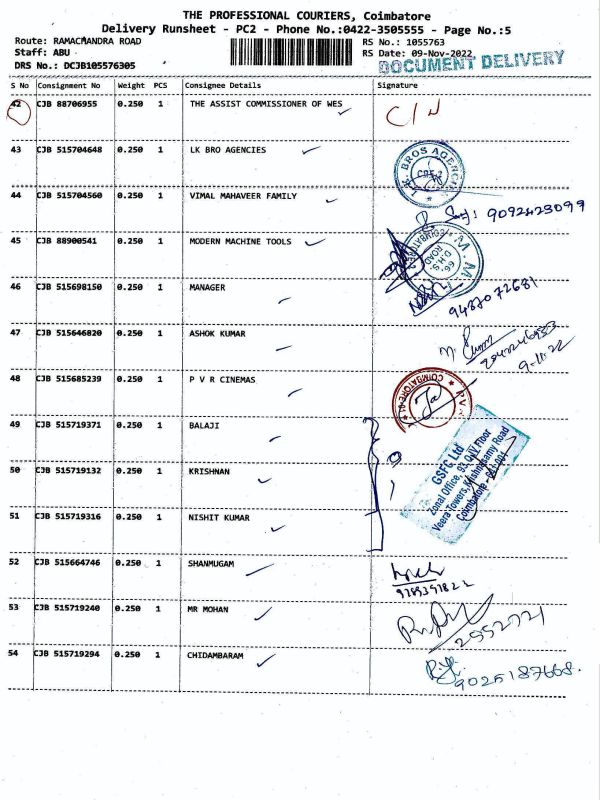 THE PROFESSIONAL COURIERS, Coimbatore
Delivery Runsheet - PC2 - Phone No.:0422-3505555 - Page No.:5
Route: RAMACHANDRA ROAD RS No.: 1055763
Staff: ABU RS Date: 09-Nov-2022
DRS No.: DCJB105576305 DOCUMENT DELIVERY
S No Consignment No Weight PCS Consignee Details Signature
42 CJB 88706955 0.250 1 THE ASSIST COMMISSIONER OF WES
43 CJB 515704648 0.250 1 LK BRO AGENCIES
BROS AGENC
44 CJB 515704560 0.250 1 VIMAL MAHAVEER FAMILY
9092423099
45 CJB 88900541 0.250 1 MODERN MACHINE TOOLS
M. M.
D.H.S.
ROAD
COIMBATORE
46 CJB 515698150 0.250 1 MANAGER
9487072681
47 CJB 515646820 0.250 1 ASHOK KUMAR
9-11-22
48 CJB 515685239 0.250 1 P V R CINEMAS
COIMBATORE
49 CJB 515719371 0.250 1 BALAJI
50 CJB 515719132 0.250 1 KRISHNAN
GSFC Ltd
Zonal Office, 93, Floor
Veera Towers, Krishnasamy Road
Coimbatore - 641 001
51 CJB 515719316 0.250 1 NISHIT KUMAR
52 CJB 515664746 0.250 1 SHANMUGAM
53 CJB 515719240 0.250 1 MR MOHAN
2552721
54 CJB 515719294 0.250 1 CHIDAMBARAM
9025187668.